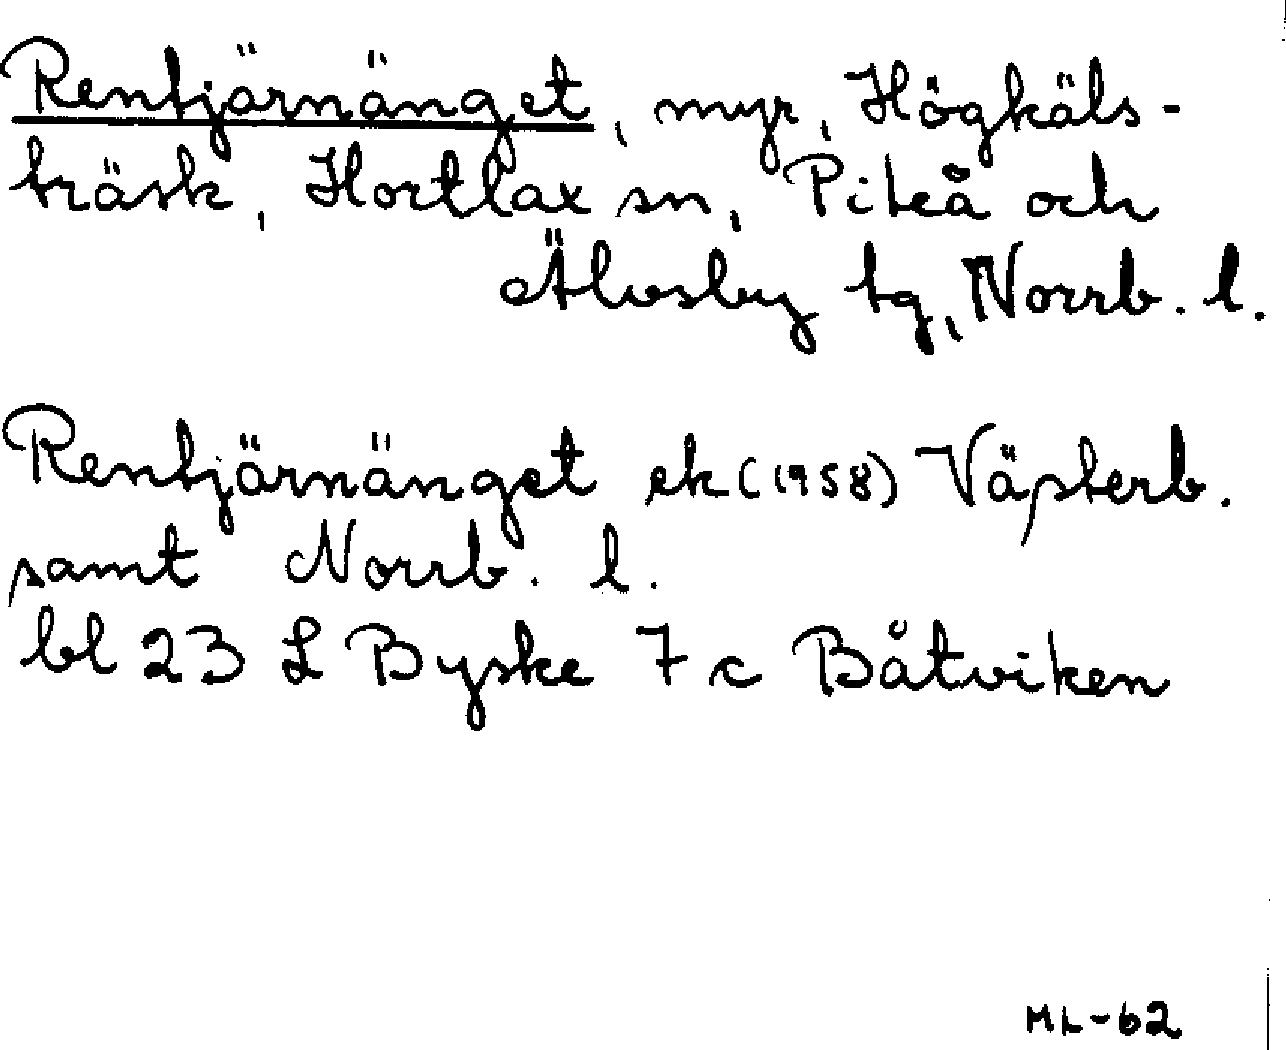 Rentjärnänget, myr, Högkäls-
träsk, Hortlax sn, Piteå och
Älvsby tg, Norrb. l.
Rentjärnänget ek (1958) Västerb.
samt Norrb. l.
bl 23 L Byske 7 c Båtviken
ML-62